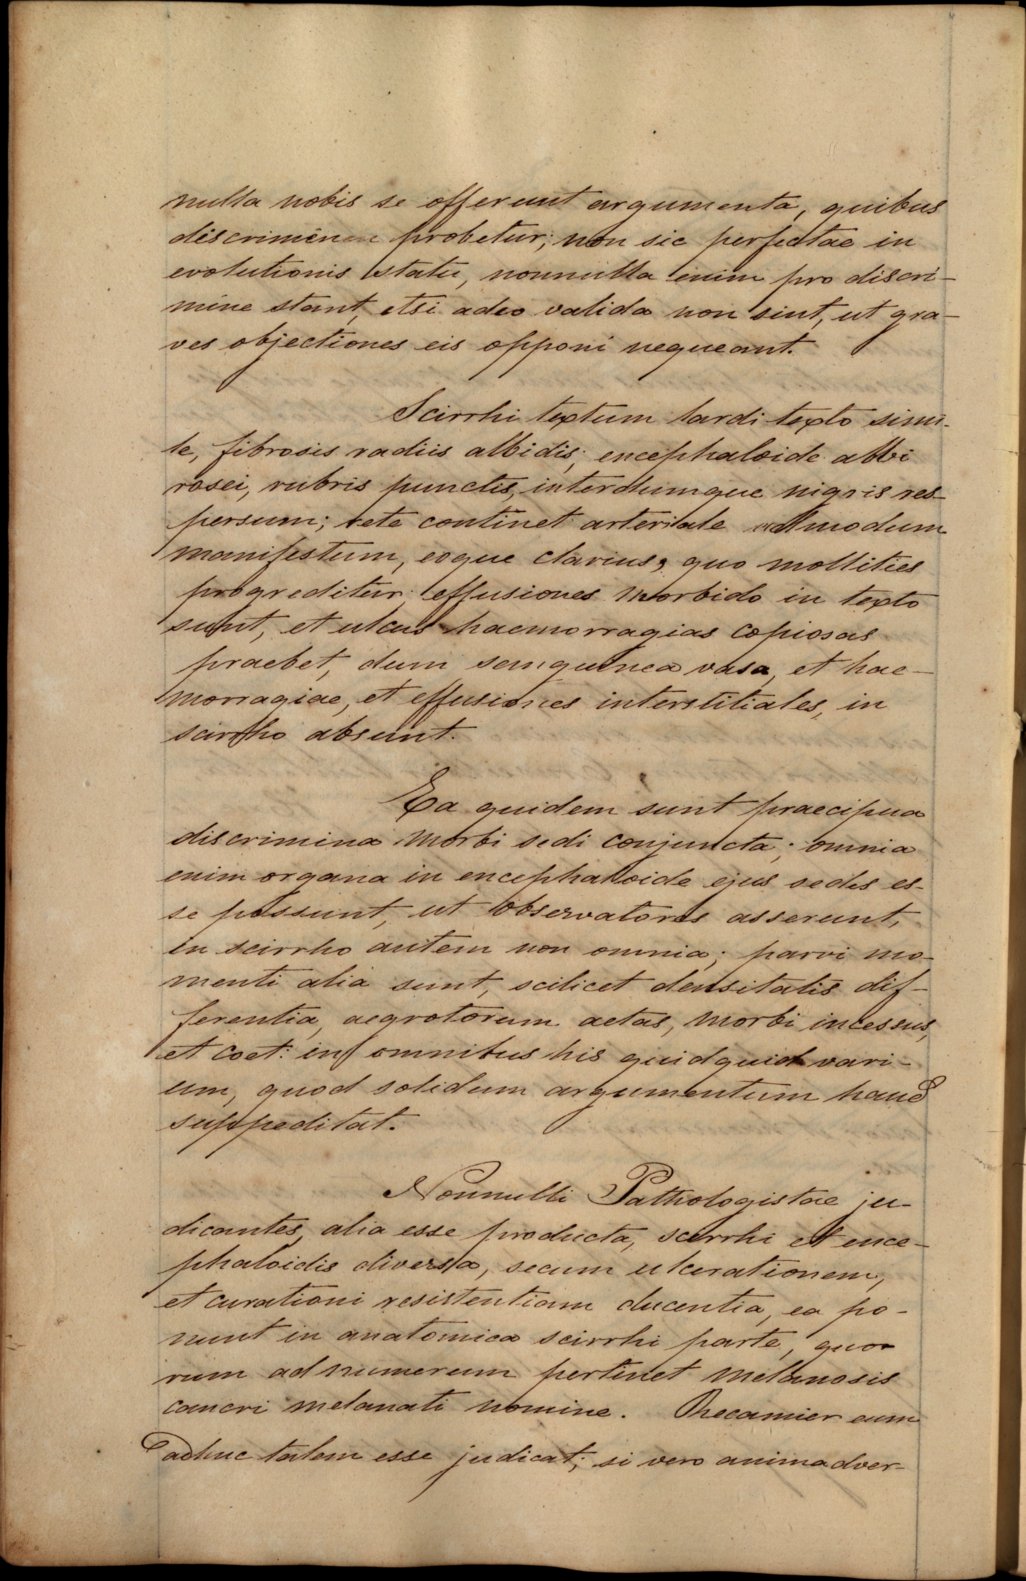 nulla nobis se offerunt argumenta, quibus
discriminen probetur; non sic perfectae in
evolutionis statu, nonnulla enim pro discri-
mine stant, etsi adeo valida non sint, ut gra-
ves objectiones eis opponi nequeant.
Scirrhi textum lardi texto simi-
le, fibrosis radiis albidis; encephaloide albi
rosei, rubris punctis, interdumque nigris res-
persum; rete continet arteriale admodum
manifestum, eoque clarius, quo mollities
progreditur; effusiones morbido in texto
sunt, et ulcus haemorragias copiosas
praebet, dum sanguinea vasa, et hae-
morragiae, et effusiones interstitiales, in
scirrho absunt.
Ea quidem sunt praecipua
discrimina morbi sedi conjuncta; omnia
enim organa in encephaloide ejus sedes es-
se possunt, ut observatores asserunt,
in scirrho autem non omnia; parvi mo-
menti alia sunt, scilicet densitatis dif-
ferentia, aegrotorum aetas, morbi incessus,
et coet: in omnibus his quidquid vari-
um, quod solidum argumentum haud
suppeditat.
Nonnulli Pathologistae ju-
dicantes, alia esse producta, scirrhi et ence-
phaloidis diversa, secum ulcerationem,
et curationi resistentiam ducentia, ea po-
nunt in anatomica scirrhi parte, quo-
rum ad numerum pertinet melanosis
cancri melanati nomine. Recamier eum
adhuc talem esse judicat; si vero animadver-